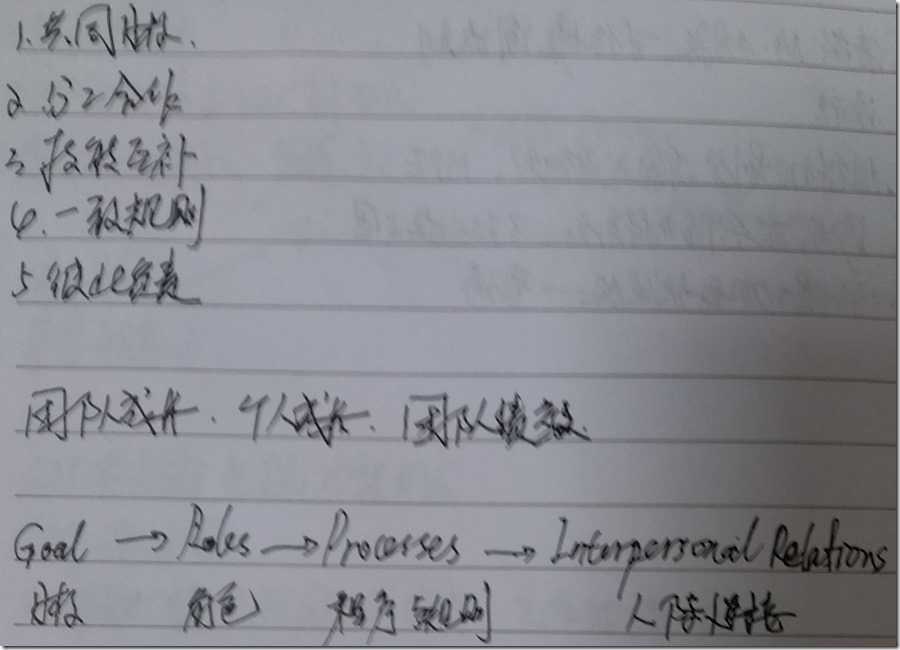 1、共同目标、
2 分工合作
3、技能互补
4、一致规则
5 彼此负责
团队成长、个人成长、团队绩效
Goal → Roles → Processes → Interpersonal Relations
目标 角色 程序规则 人际